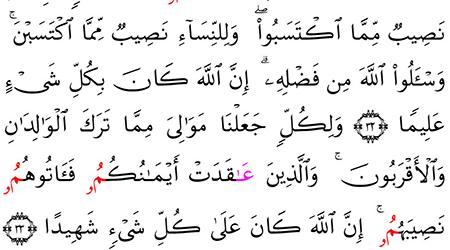 نَصِيبٌ مِّمَّا ٱكْتَسَبُوا۟ ۖ وَلِلنِّسَآءِ نَصِيبٌ مِّمَّا ٱكْتَسَبْنَ ۚ
وَسْـَٔلُوا۟ ٱللَّهَ مِن فَضْلِهِۦٓ ۗ إِنَّ ٱللَّهَ كَانَ بِكُلِّ شَىْءٍ
عَلِيمًا ٣٢ وَلِكُلٍّ جَعَلْنَا مَوَٰلِىَ مِمَّا تَرَكَ ٱلْوَٰلِدَانِ
وَٱلْأَقْرَبُونَ ۚ وَٱلَّذِينَ عَـٰقَدَتْ أَيْمَـٰنُكُمُۥ فَـَٔاتُوهُمُۥ
نَصِيبَهُمُۥ ۚ إِنَّ ٱللَّهَ كَانَ عَلَىٰ كُلِّ شَىْءٍ شَهِيدًا ٣٣